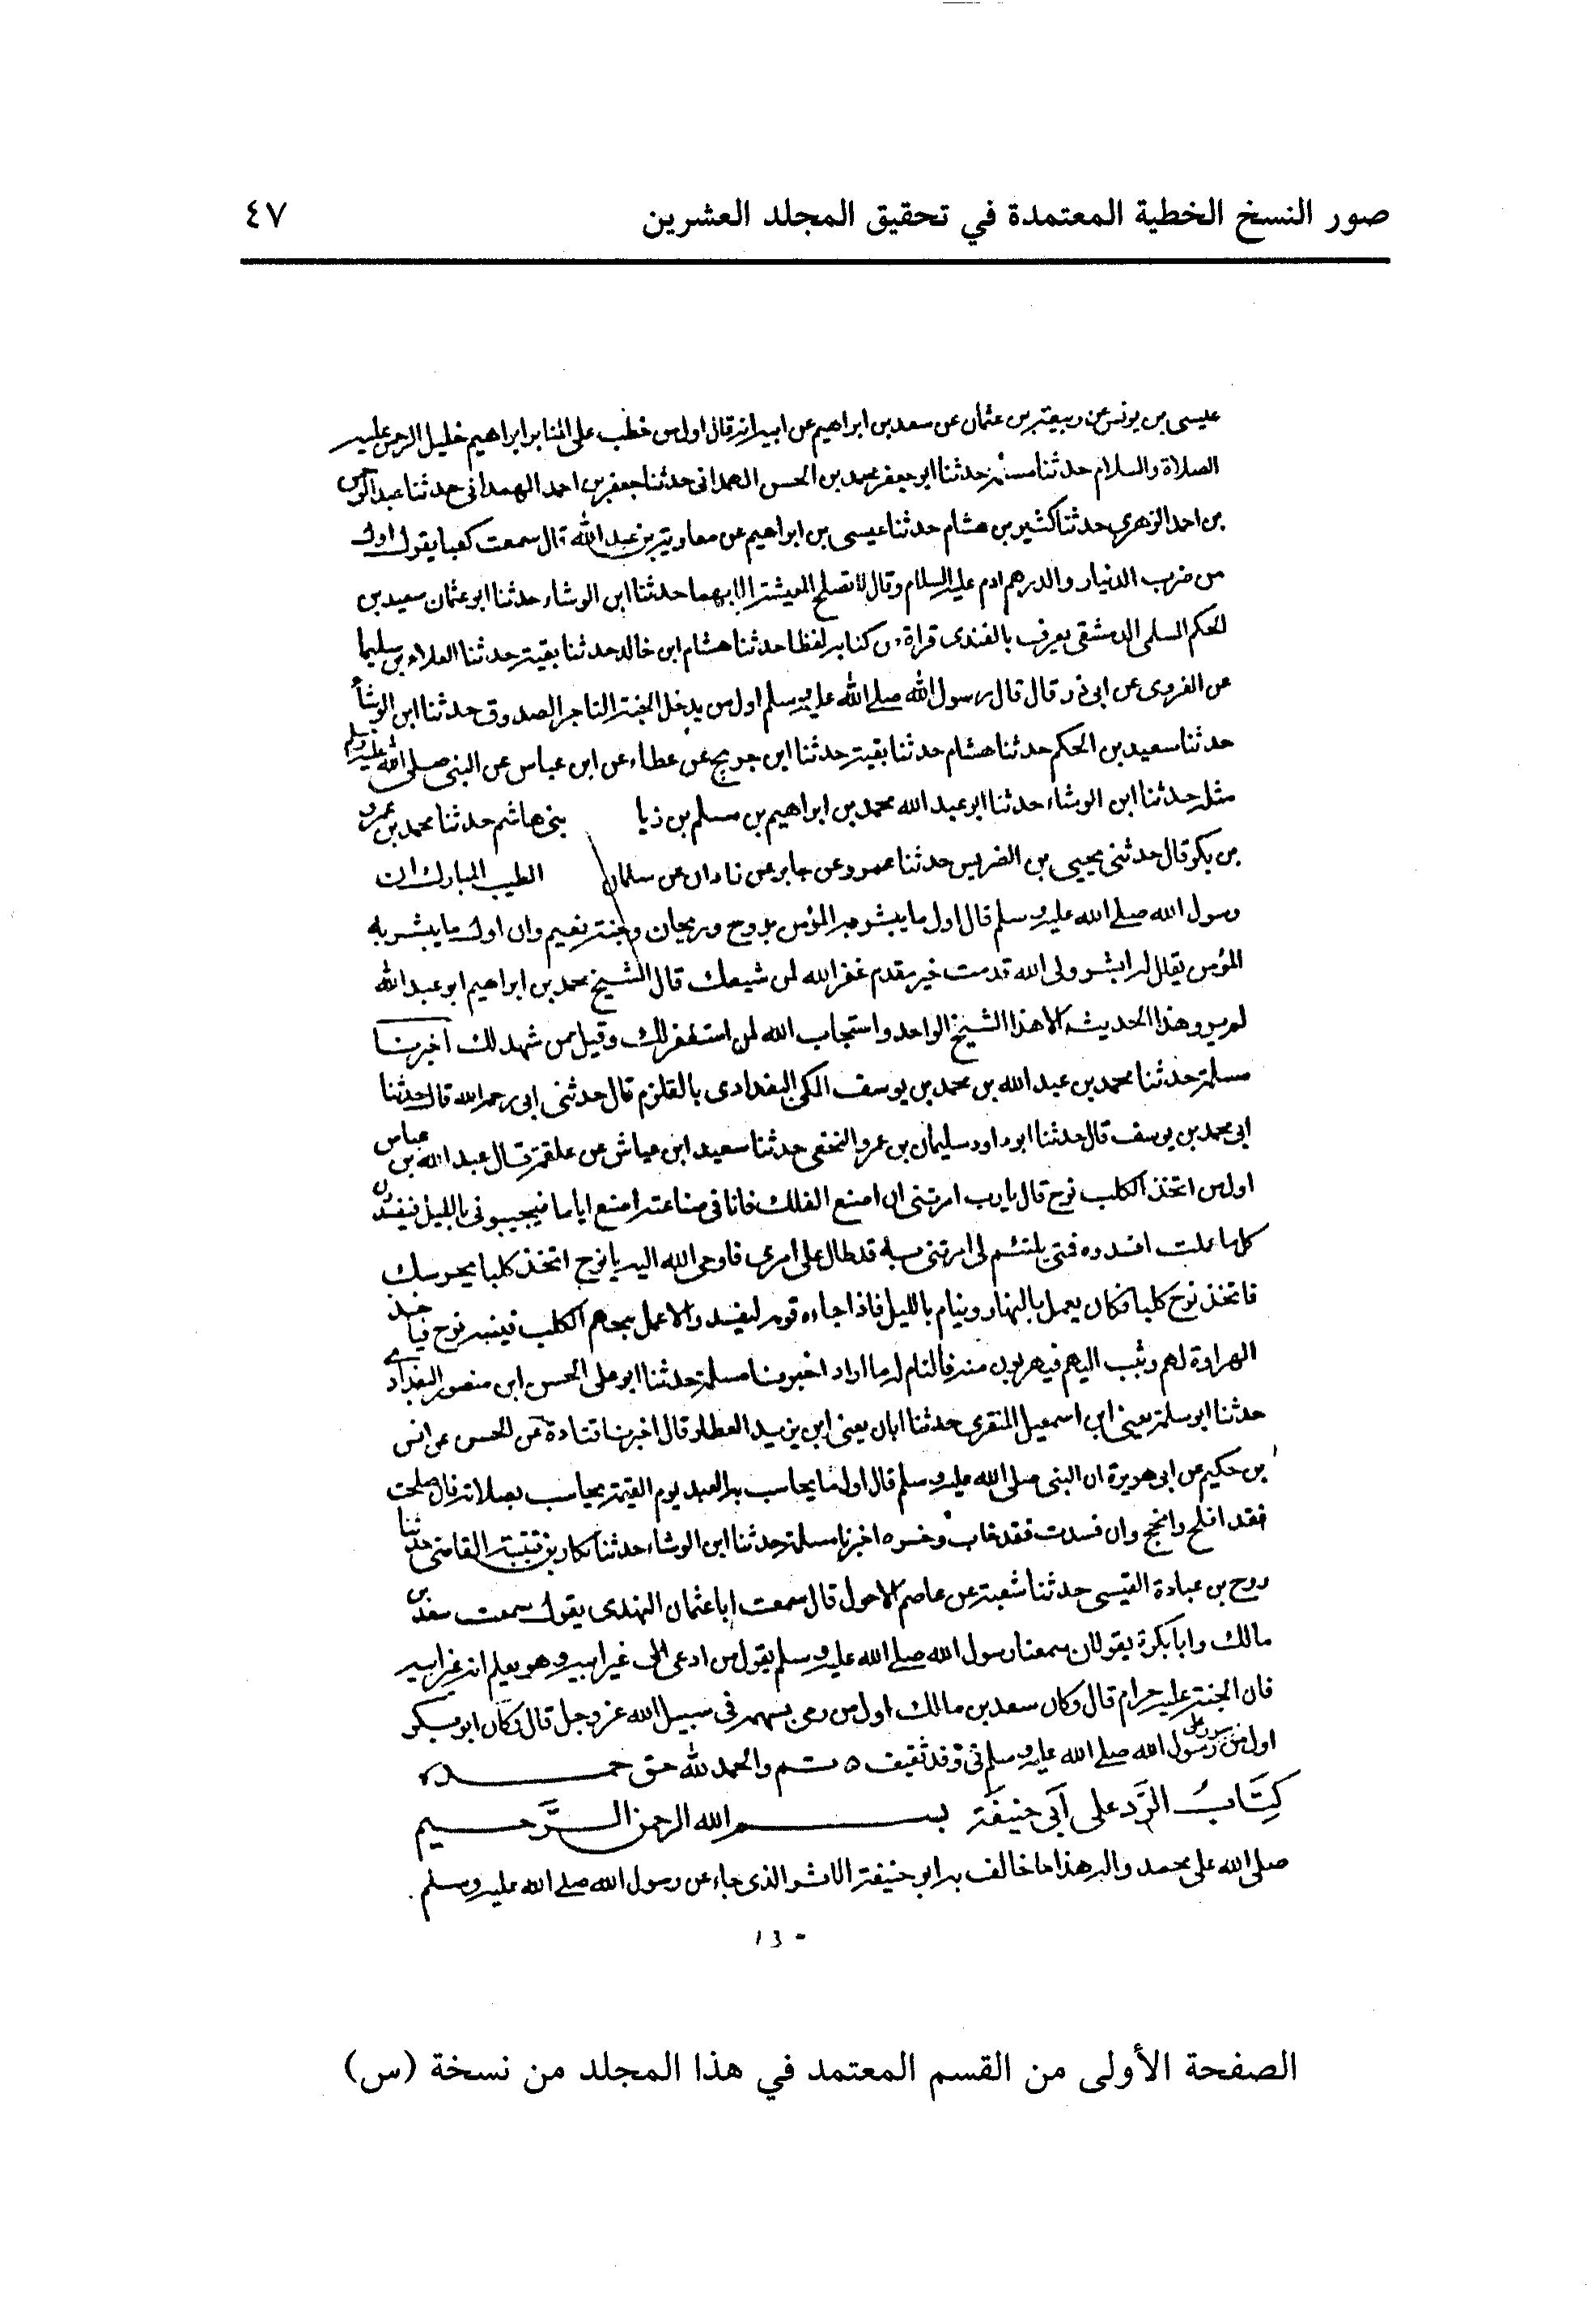 صور النسخ الخطية المعتمدة في تحقيق المجلد العشرين ٤٧
عيسى بن يونس عن ربيعة بن عثمان عن سعد بن ابراهيم عن ابيه انه قال اول من خطب على المنابر ابراهيم خليل الرحمن عليه
الصلاة والسلام حدثنا مسلمة حدثنا ابو جعفر محمد بن الحسن الهمدانى حدثنا جعفر بن احمد الهمدانى حدثنا
بن احمد الزهرى حدثنا كثير بن هشام حدثنا عيسى بن ابراهيم عن معاوية بن عبد الله قال سمعت كعبا يقول اول
من ضرب الدنيار والدرهم ادم عليه السلام وقال لا تصلح المعيشة الا بهما حدثنا ابن الوشاء حدثنا ابو عثمان سعيد بن
الحكم السلمى الدمشقى يعرف بالفندى قراة من كتابه لفظا حدثنا هشام ابن خالد حدثنا بقية حدثنا العلاء بن سليما
عن الفروى عن ابى ذر قال قال رسول الله صلى الله عليه وسلم اول من يدخل الجنة التاجر الصدوق حدثنا ابن الوشا
حدثنا سعيد بن الحكم حدثنا هشام حدثنا بقية حدثنا ابن جريج عن عطاء عن ابن عباس عن النبى صلى الله عليه وسلم
مثله حدثنا ابن الوشاء حدثنا ابو عبد الله محمد بن ابراهيم بن مسلم بن زيا بنى هاشم حدثنا محمد بن عمرو
بن بكر قال حدثنى يحيى بن الضريس حدثنا عمرو عن جابر عن زاذان عن سلمان الطيب المبارك ان
رسول الله صلى الله عليه وسلم قال اول ما يبشر به المؤمن بروح وريحان وجنة نعيم وان اول ما يبشر به
المؤمن يقال له ابشر ولى الله قدمت خير مقدم غفر الله لمن شيعك قال الشيخ محمد بن ابراهيم ابو عبد الله
لم يرو هذا الحديث الا هذا الشيخ الواحد واستجاب الله لمن استغفر لك وقبل ممن شهد لك اخبرنا
مسلمة حدثنا محمد بن عبد الله بن محمد بن يوسف المكى البغدادى بالقلزم قال حدثنى ابى رحمه الله قال حدثنا
ابى محمد بن يوسف قال حدثنا ابو داود سليمان بن عمرو النخعى حدثنا سعيد ابن عياش عن علقمة قال عبد الله بن عباس
اول من اتخذ الكلب نوح قال يا رب امرتنى ان اصنع الفلك فانا فى صناعته اصنع اياما فيجيبونى بالليل فيفسدون
كل ما عملت افسدوه فمتى يلتئم لى امرتنى به قد طال على امرى فاوحى الله اليه يا نوح اتخذ كلبا يحرسك
فاتخذ نوح كلبا فكان يعمل بالنهار وينام بالليل فاذا جاءه قومه ليفسدوا لاعمل الكلب فينبه نوح فياخذ
الهراوة لهم ويثب اليهم فيهربون منه فالتام له ما اراد اخبرنا مسلمة حدثنا ابو على الحسن ابن منصور البغدادى
حدثنا ابو سلمة يعنى ابن اسمعيل المنقرى حدثنا ابان يعنى ابن يزيد العطار قال اخبرنا قتادة عن الحسن عن انس
بن حكيم عن ابى هريرة ان النبى صلى الله عليه وسلم قال اول ما يحاسب به العبد يوم القيمة يحاسب بصلاته فان صلحت
فقد افلح وانجح وان فسدت فقد خاب وخسر ه اخبرنا مسلمة حدثنا ابن الوشاء حدثنا بكار بن قتيبة القاضى حدثنا
روح بن عبادة القيسى حدثنا شعبة عن عاصم الاحول قال سمعت ابا عثمان النهدى يقول سمعت سعد بن
مالك وابا بكرة يقولان سمعنا رسول الله صلى الله عليه وسلم يقول من ادعى الى غير ابيه وهو يعلم انه غير ابيه
فان الجنة عليه حرام قال وكان سعد بن مالك اول من رمى بسهم فى سبيل الله عز وجل قال وكان ابو بكر
اول من رسول الله صلى الله عليه وسلم فى وفد ثقيف ه تم والحمد لله حق حمده
كِتَابُ الرَّد على أبى حنيفَة بسم الله الرحمن الرَّحيم
صلى الله على محمد واله هذا ما خالف به ابو حنيفة الاثر الذى جاء عن رسول الله صلى الله عليه وسلم .
الصفحة الأولى من القسم المعتمد في هذا المجلد من نسخة (س)